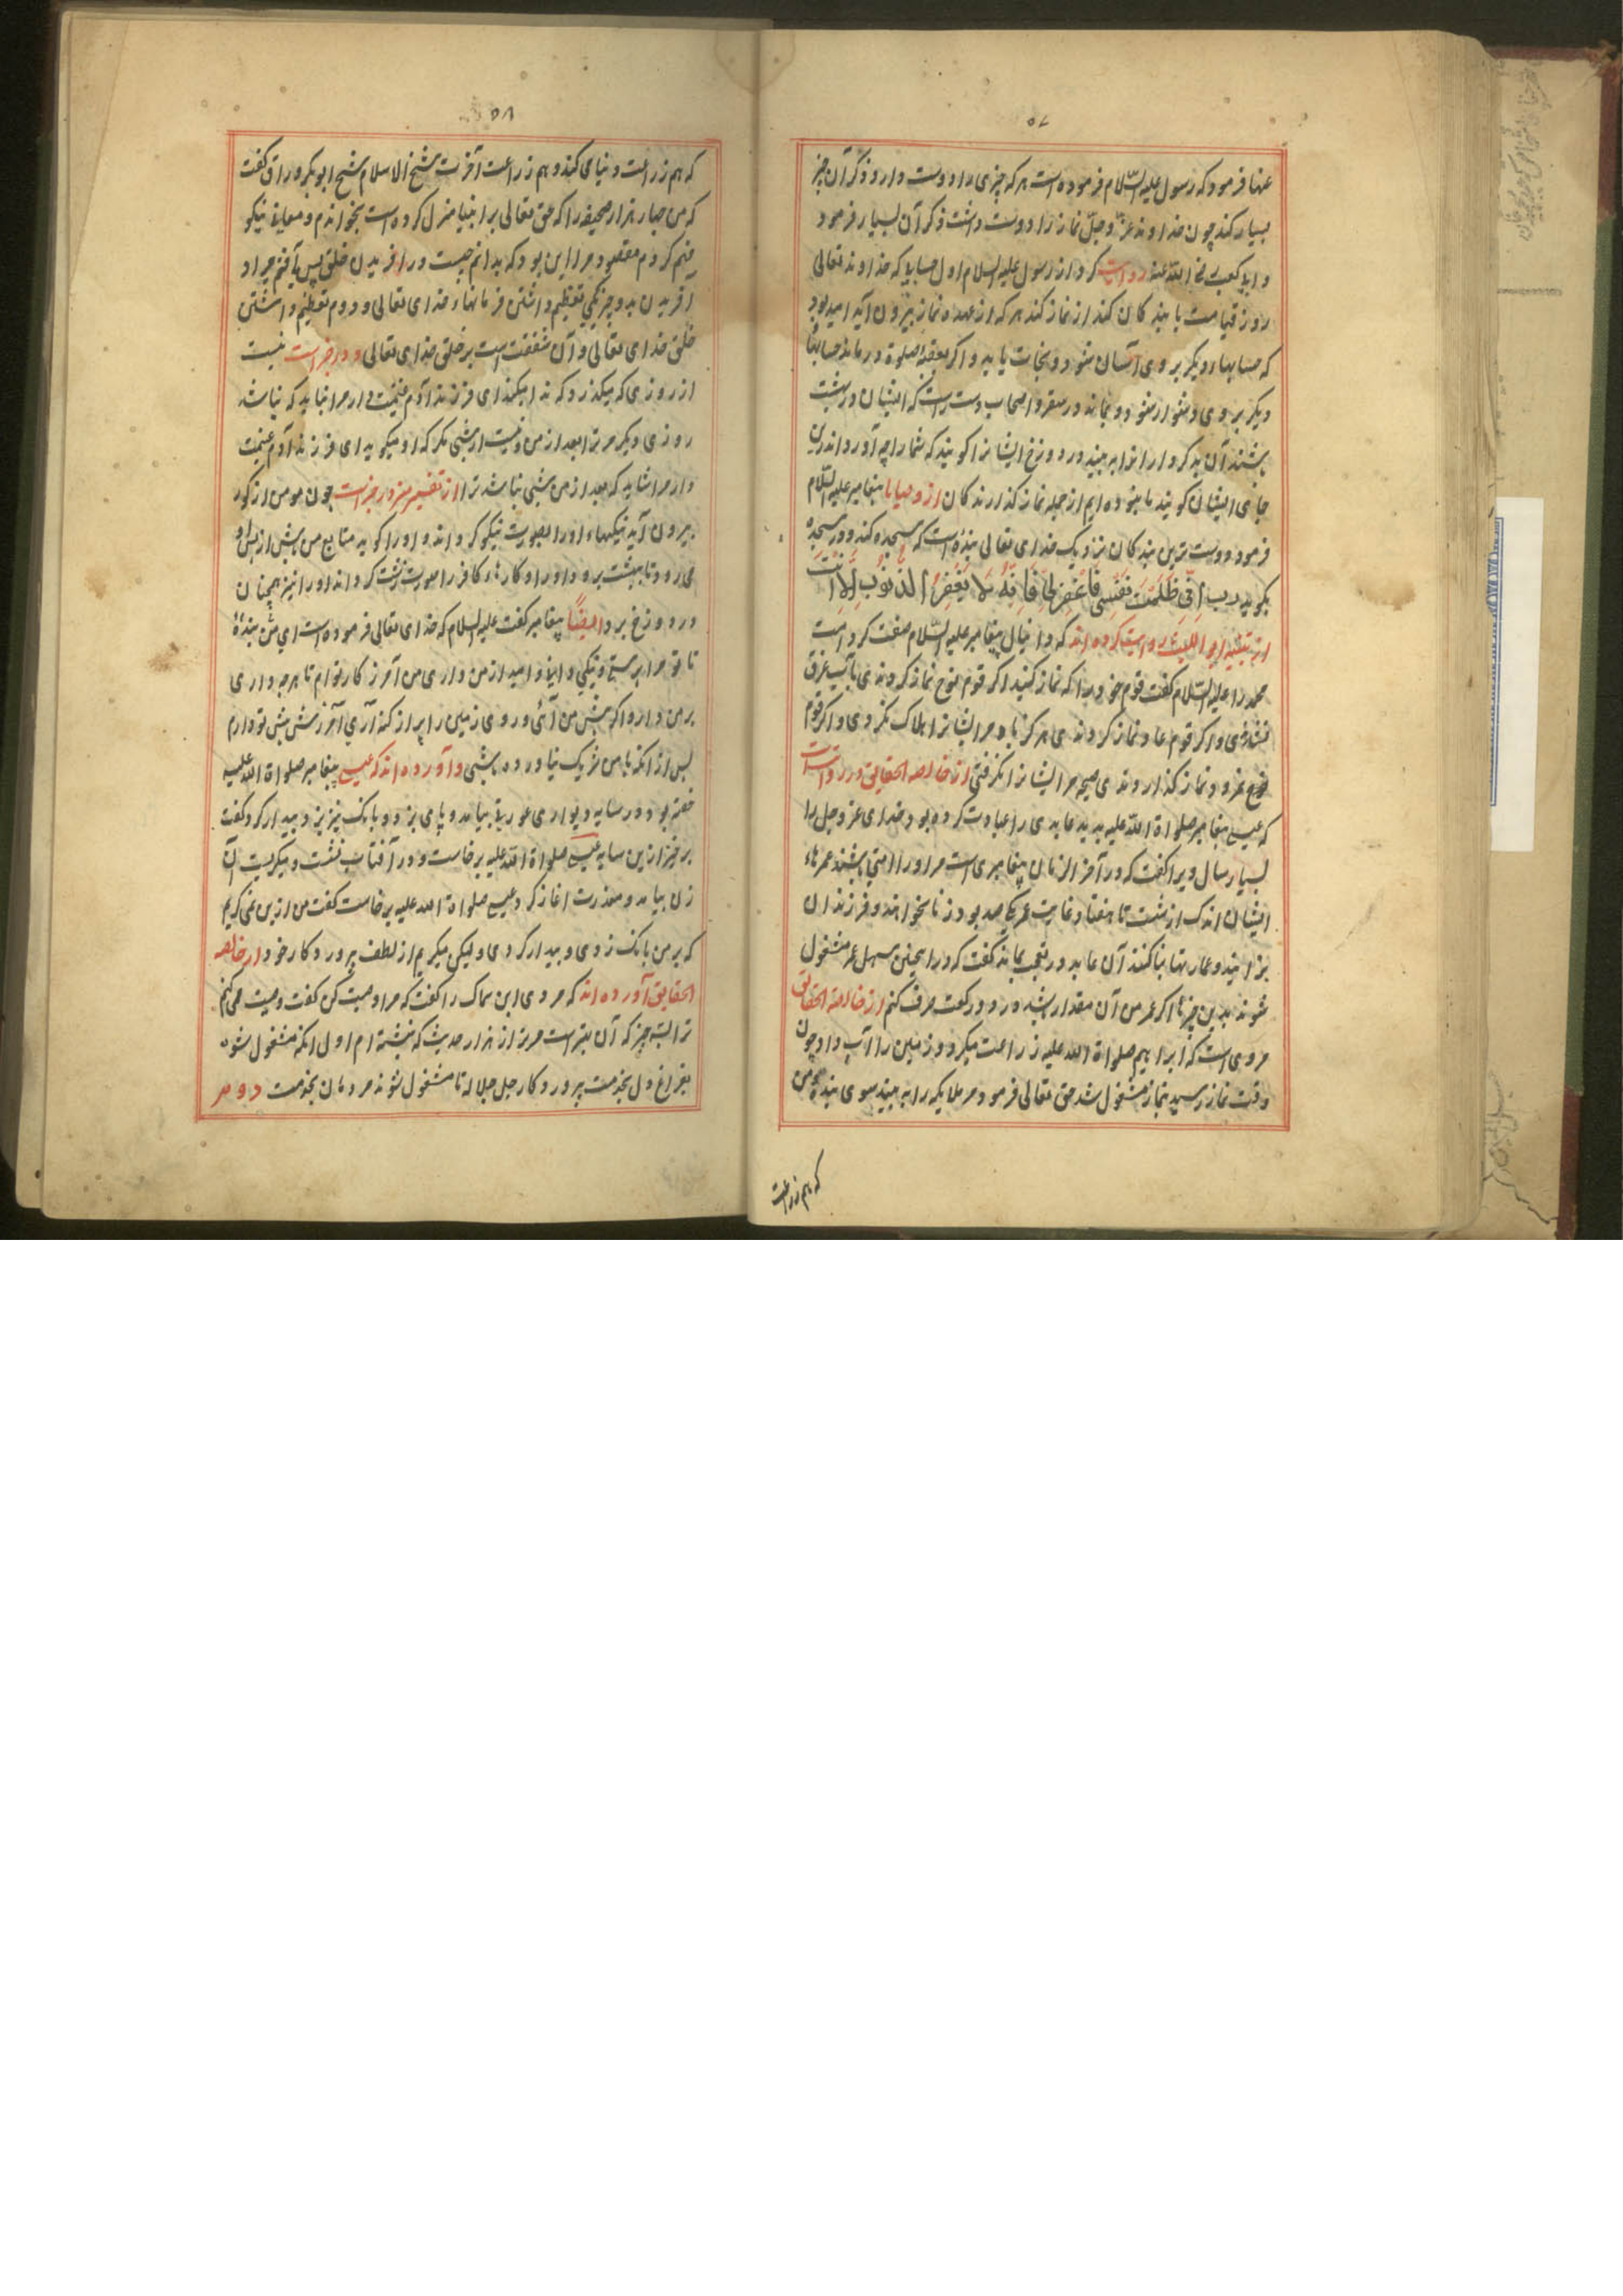 ۵۷
عنها فرمود که رسول علیه السّلام فرموده است هر که چیزی را دوست دارد ذکر آن چیز
بسیار کند چون خداوند عزّ وجلّ نماز را دوست داشت ذکر آن بسیار فرمود
و ابی کعب رضی اللّه عنه روایت کرد از رسول علیه السلام اول حسابی که خداوند تعالی
روز قیامت با بندگان کند از نماز کند هر که از عهده نماز بیرون آید امید بود
که حسابهاء دیگر بر وی آسان شود و نجات یابد و اگر بعقبه صلوة درماند حسابها
دیگر بر وی دشوار شود و بماند در سقر و اصحاب دست راست که ایشان در بهشت
باشند آن بدکردارانرا به بینند در دوزخ ایشانرا گویند که شما را چه آورد اندرین
جای ایشان گویند ما نبوده ایم از جمله نماز گذارندگان از وصایا پیغامبر علیه السّلام
فرمود دوست ترین بندگان نزدیک خدای تعالی بنده است که سجده کند و در سجده
بگوید رب اِنّی ظَلَمتُ نَفْسِی فَاغْفِرْلِی فَاِنَّهُ لَا یَغْفِرُ الذُّنُوبَ اِلَّا اَنْتَ
از تنبیه ابو اللیث روایت کرده اند که دانیال پیغامبر علیه السّلام صفت کرد امت
محمد را علیه السّلام گفت قوم خود را که نماز کنید اگر قوم نوح نماز کردندی بآب غرق
نشدندی و اگر قوم عاد نماز کردندی هرگز باد مر ایشانرا هلاک نکردی و اگر قوم
ثمود نماز گذاردندی صیحه مر ایشانرا نگرفتی از خالصة الحقایق در روایت است
که عیسی پیغامبر صلواة اللّه علیه بدید عابدی را عبادت کرده بود خدای عز وجل را
بسیار سال ویرا گفت که در آخر الزمان پیغامبری است مر او را امتی باشند عمرهاء
ایشان اندک از شست تا هفتاد غایت عمر یکصد بود زنا نخواهند و فرزندان
بزایند و عمارتها بنا کنند آن عابد در تعجب بماند گفت که در اینچنین سهل عمر مشغول
شوند بدین چیزها اگر عمر من آن مقدار باشد در دو رکعت صرف کنم از خالصة الحقایق
مروی است که ابراهیم صلواة اللّه علیه زراعت میکرد و زمین را آب داد چون
وقت نماز رسید بنماز مشغول شد حق تعالی فرمود مر ملایکه را به بینید سوی بنده من
که هم زراعت
۵۸
که هم زراعت دنیا می کند و هم زراعت آخرت شیخ الاسلام شیخ ابوبکر وراق گفت
که من چهار هزار صحیفه را که حق تعالی بر انبیا منزل کرده است بخواندم و معانی نیکو
فهم کردم مقصود مرا این بود که بدانم چیست در آفریدن خلق پس یافتم مراد
آفریدن بدو چیز یکی تعظیم داشتن فرمانهاء خدای تعالی و دوم تعظیم داشتن
خلق خدای تعالی و آن شفقت است بر خلق خدای تعالی و در خبر است نیست
از روزی که میگذرد که ندا میکند ای فرزند آدم غنیمت دار مرا نباید که نباشد
روزی دیگر مر ترا بعد از من و نیست از شبی مگر که او میگوید ای فرزند آدم غنیمت
دار مرا شاید که بعد از من شبی نباشد ترا از تفسیر منیر در خبر است چون مومن از گور
بیرون آید نیکیهاء او را بصورت نیکو گرداند و او را گوید متابع من باش از پس او
می رود تا ببهشت برود او را و کارهاء کافر را صورت زشت گرداند او را نیز همچنان
در دوزخ برد ایضًا پیغامبر گفت علیه السلام که خدای تعالی فرموده است ای من بندهٔ
تا تو مرا پرستی و نیکی دانی و امید از من داری من آمرزگار توام تا هر چه داری
بر من دار و اگر پیش من آئی و روی زمین را پر از گنه آری آمرزش پیش تو دارم
پس از آنکه با من شریک نیاورده باشی و آورده اند که عیسی پیغامبر صلواة اللّه علیه
خفته بود در سایه دیواری عورتی بیامد و پای بزد و بانک نیز بزد و بیدار کرد گفت
برخیز ازین سایه عیسی صلواة اللّه علیه برخاست و در آفتاب نشست و میگریست آن
زن بیامد و معذرت اغاز کرد عیسی صلواة اللّه علیه برخاست گفت من ازین نمی گریم
که بر من بانک زدی و بیدار کردی ولیکن میگریم از لطف پروردگار خود از خالصه
الحقایق آورده اند که مردی ابن سماک را گفت که مرا وصیت کن گفت وصیت می کنم
ترا بسه چیز که آن بهتر است مر ترا از هزار حدیث که نبشته ام اول انکه مشغول شوی
بفراغ دل بخدمت پروردگار جل جلاله تا مشغول شوند مردمان بخدمت دوم